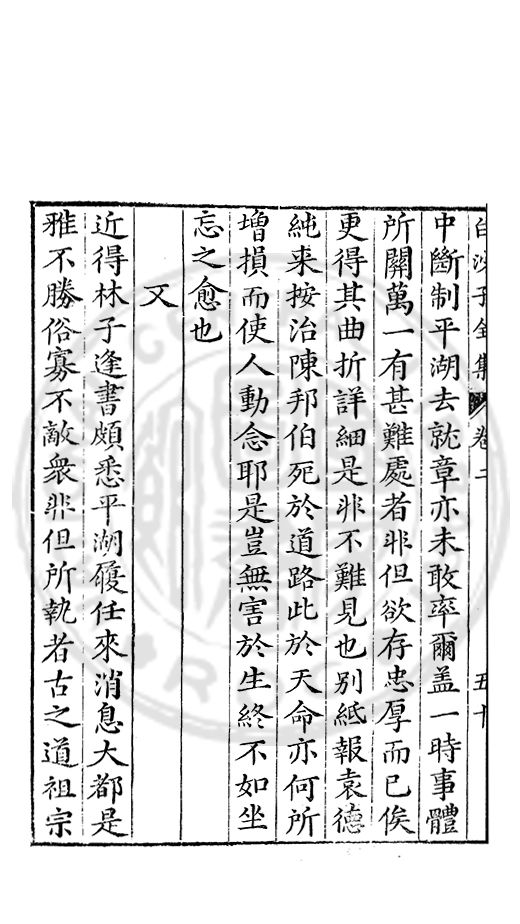 白沙子全集 卷二 五十
中斷制平湖去就章亦未敢率爾盖一時事體
所關萬一有甚難處者非但欲存忠厚而已俟
更得其曲折詳細是非不難見也別紙報袁德
純来按治陳邦伯死於道路此於天命亦何所
增損而使人動念耶是豈無害於生終不如坐
忘之愈也
又
近得林子逢書頗悉平湖履任來消息大都是
雅不勝俗寡不敵衆非但所執者古之道祖宗